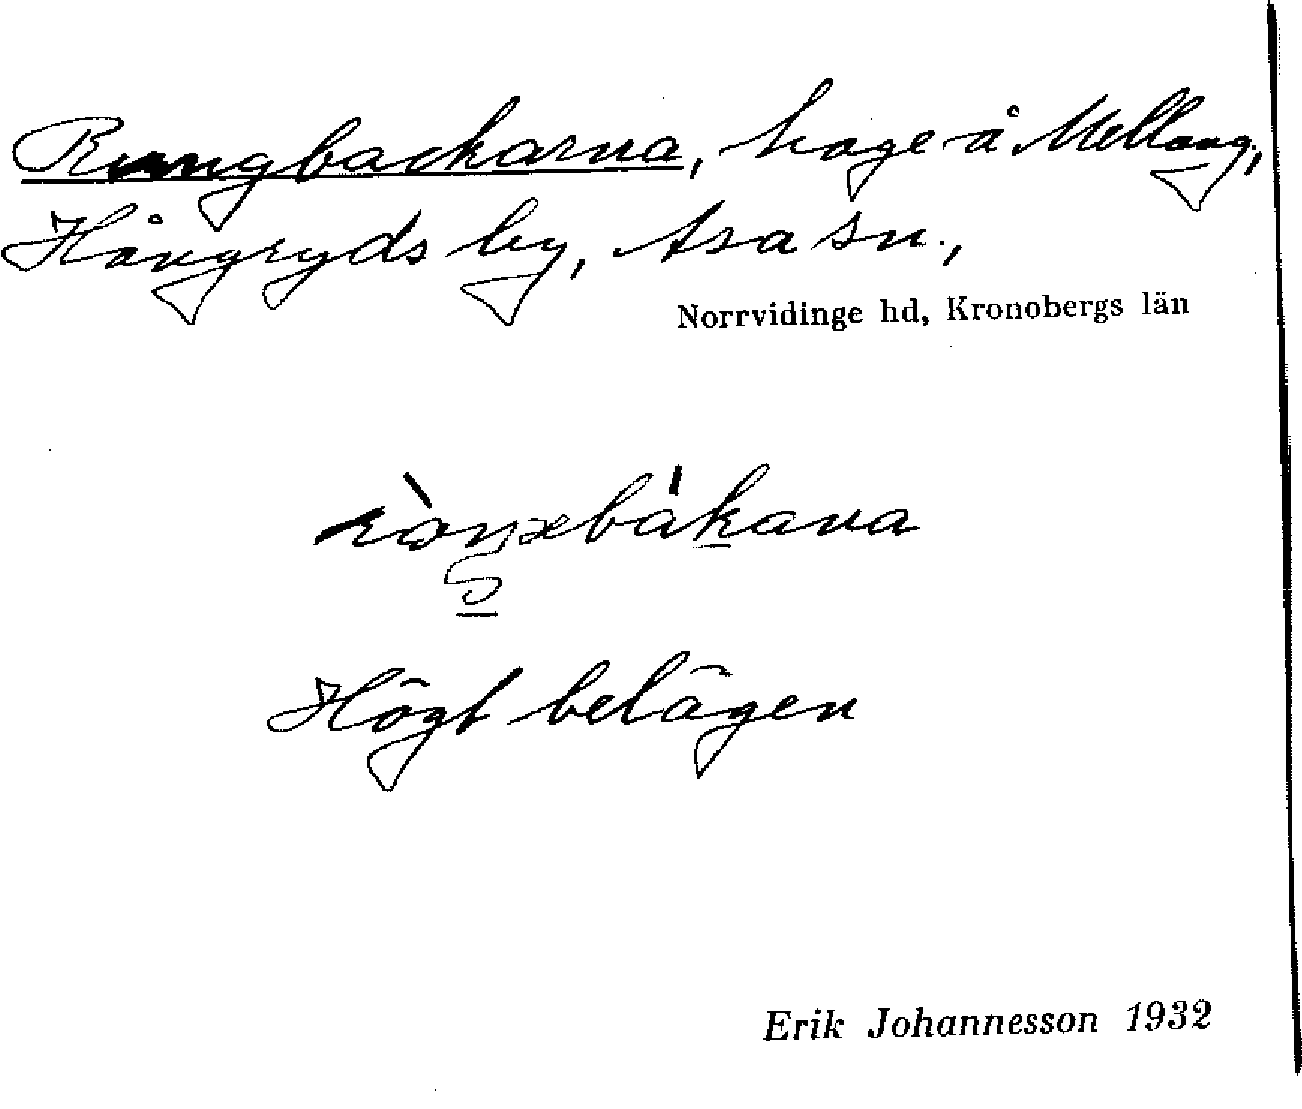 Rungbackarna, hage å Mellang.,
Hångryds by, Asa sn.,
Norrvidinge hd, Kronobergs län
Högt belägen
Erik Johannesson 1932